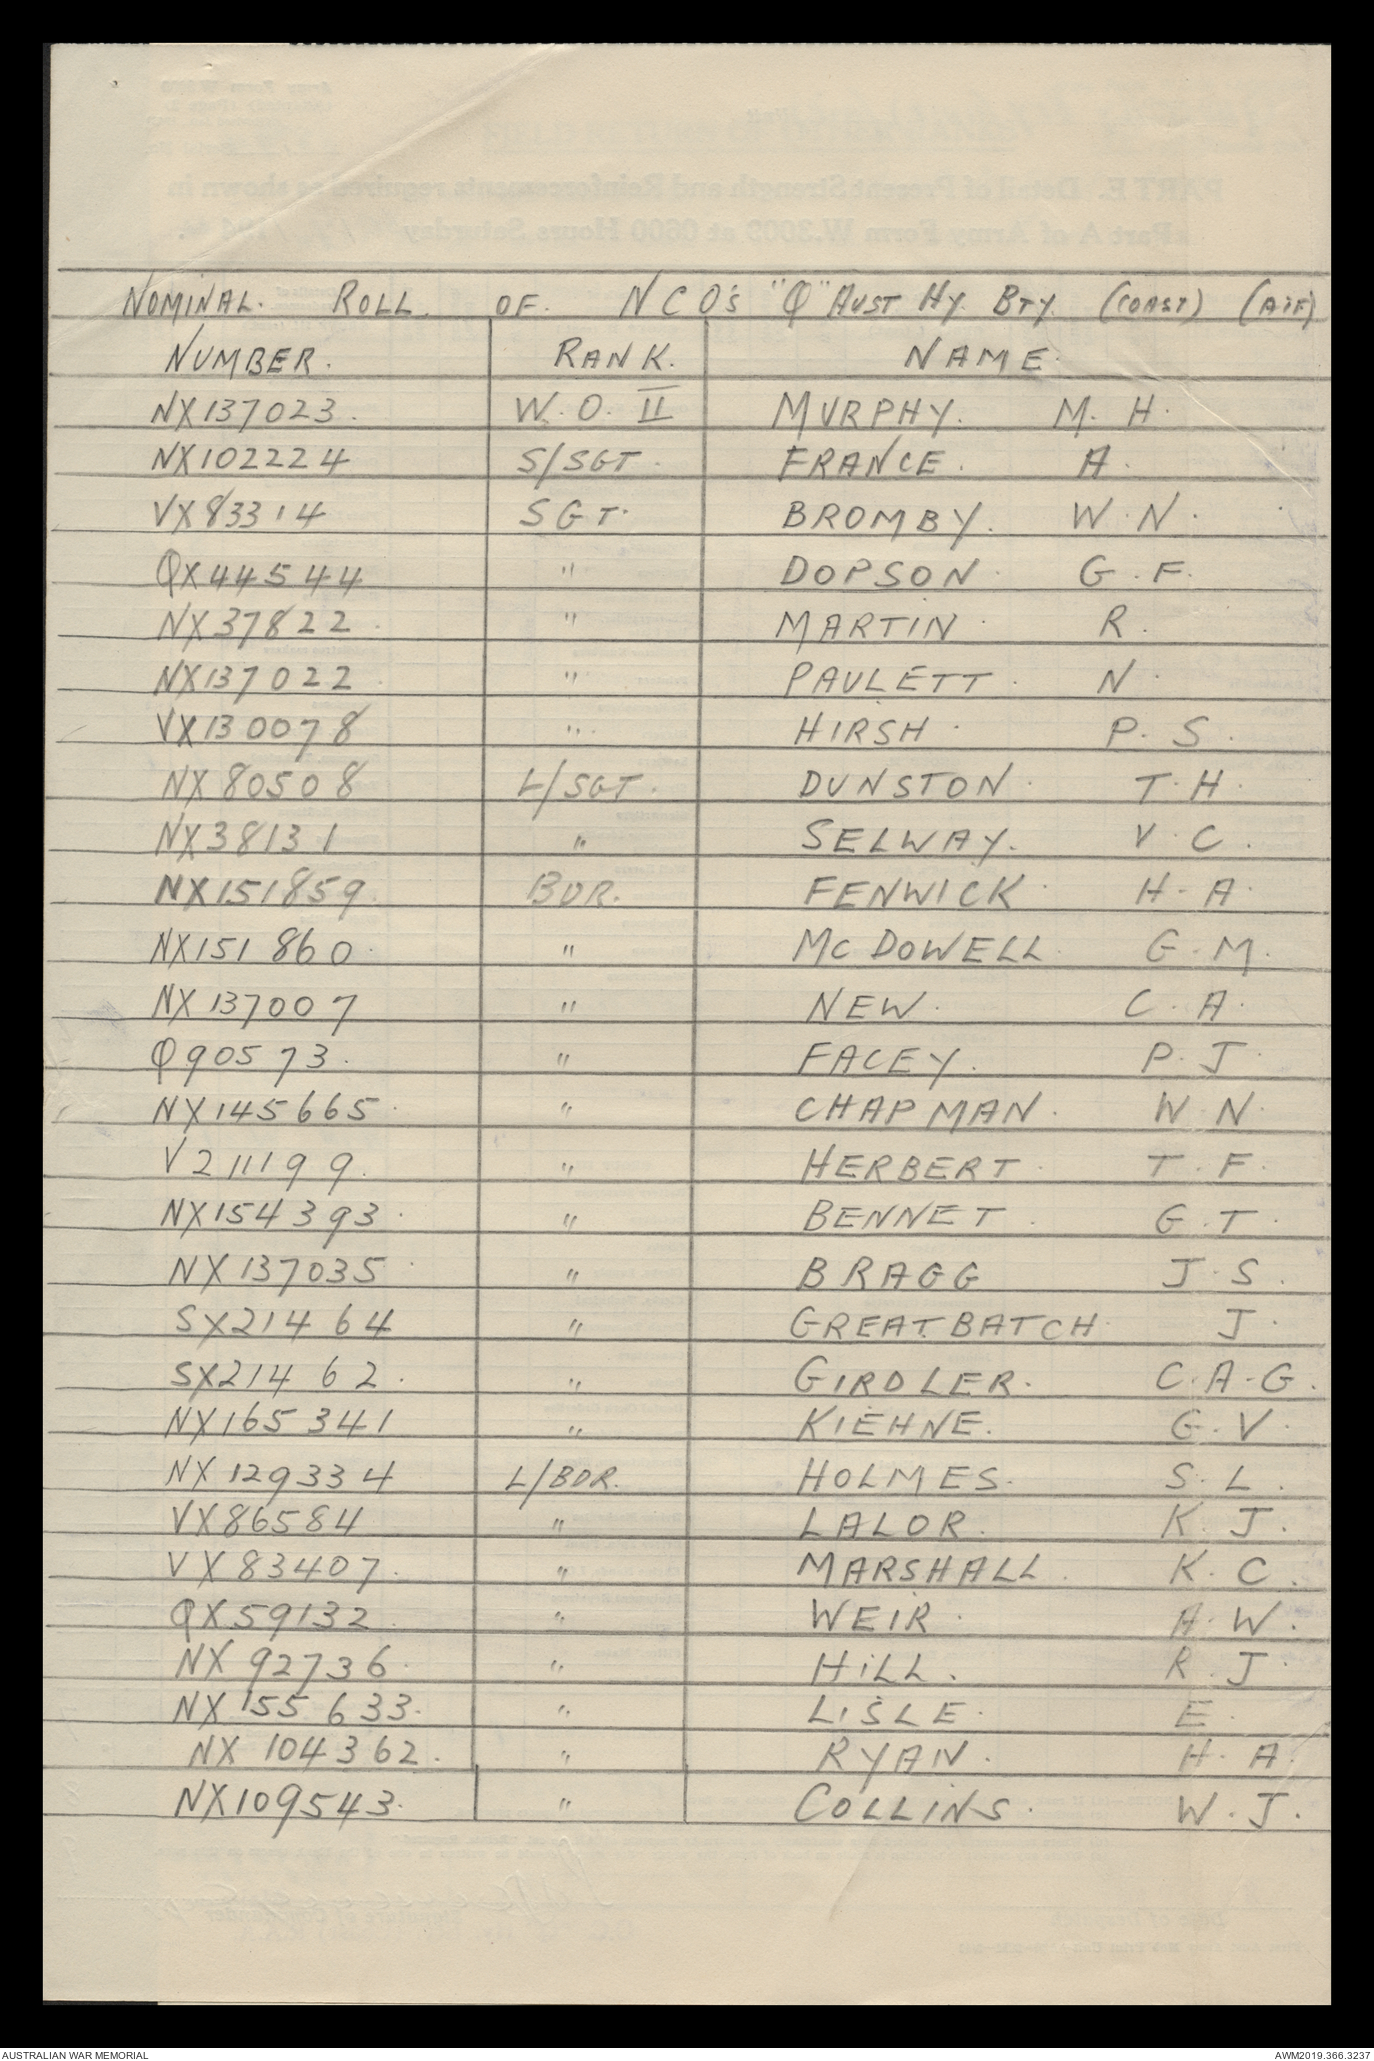 NOMINAL. ROLL. OF. N C O's "Q" AUST HY. BTY. (COAST) (AIF)
NUMBER. RANK. NAME.
NX137023. W. O. II MURPHY. M. H.
NX102224 S/SGT. FRANCE. A.
VX83314 SGT. BROMBY. W. N.
QX44544 " DOPSON. G. F.
NX37822. " MARTIN. R.
NX137022. " PAULETT. N.
VX130078 " HIRSH. P. S.
NX80508 L/SGT. DUNSTON. T. H.
NX38131 " SELWAY. V. C.
NX151859. BDR. FENWICK. H. A.
NX151860. " MC DOWELL. G. M.
NX137007 " NEW. C. A.
Q90573. " FACEY. P. J.
NX145665. " CHAPMAN. W. N.
V211199. " HERBERT. T. F.
NX154393. " BENNET. G. T.
NX137035. " BRAGG J. S.
SX21464 " GREATBATCH. J.
SX21462. " GIRDLER. C. A. G.
NX165341 " KIEHNE. G. V.
NX129334 L/BDR. HOLMES. S. L.
VX86584 " LALOR. K. J.
VX83407. " MARSHALL. K. C.
QX59132. " WEIR. A. W.
NX92736. " HILL. R. J.
NX155633. " LISLE. E.
NX104362. " RYAN. H. A.
NX109543. " COLLINS. W. J.
AUSTRALIAN WAR MEMORIAL AWM2019.366.3237